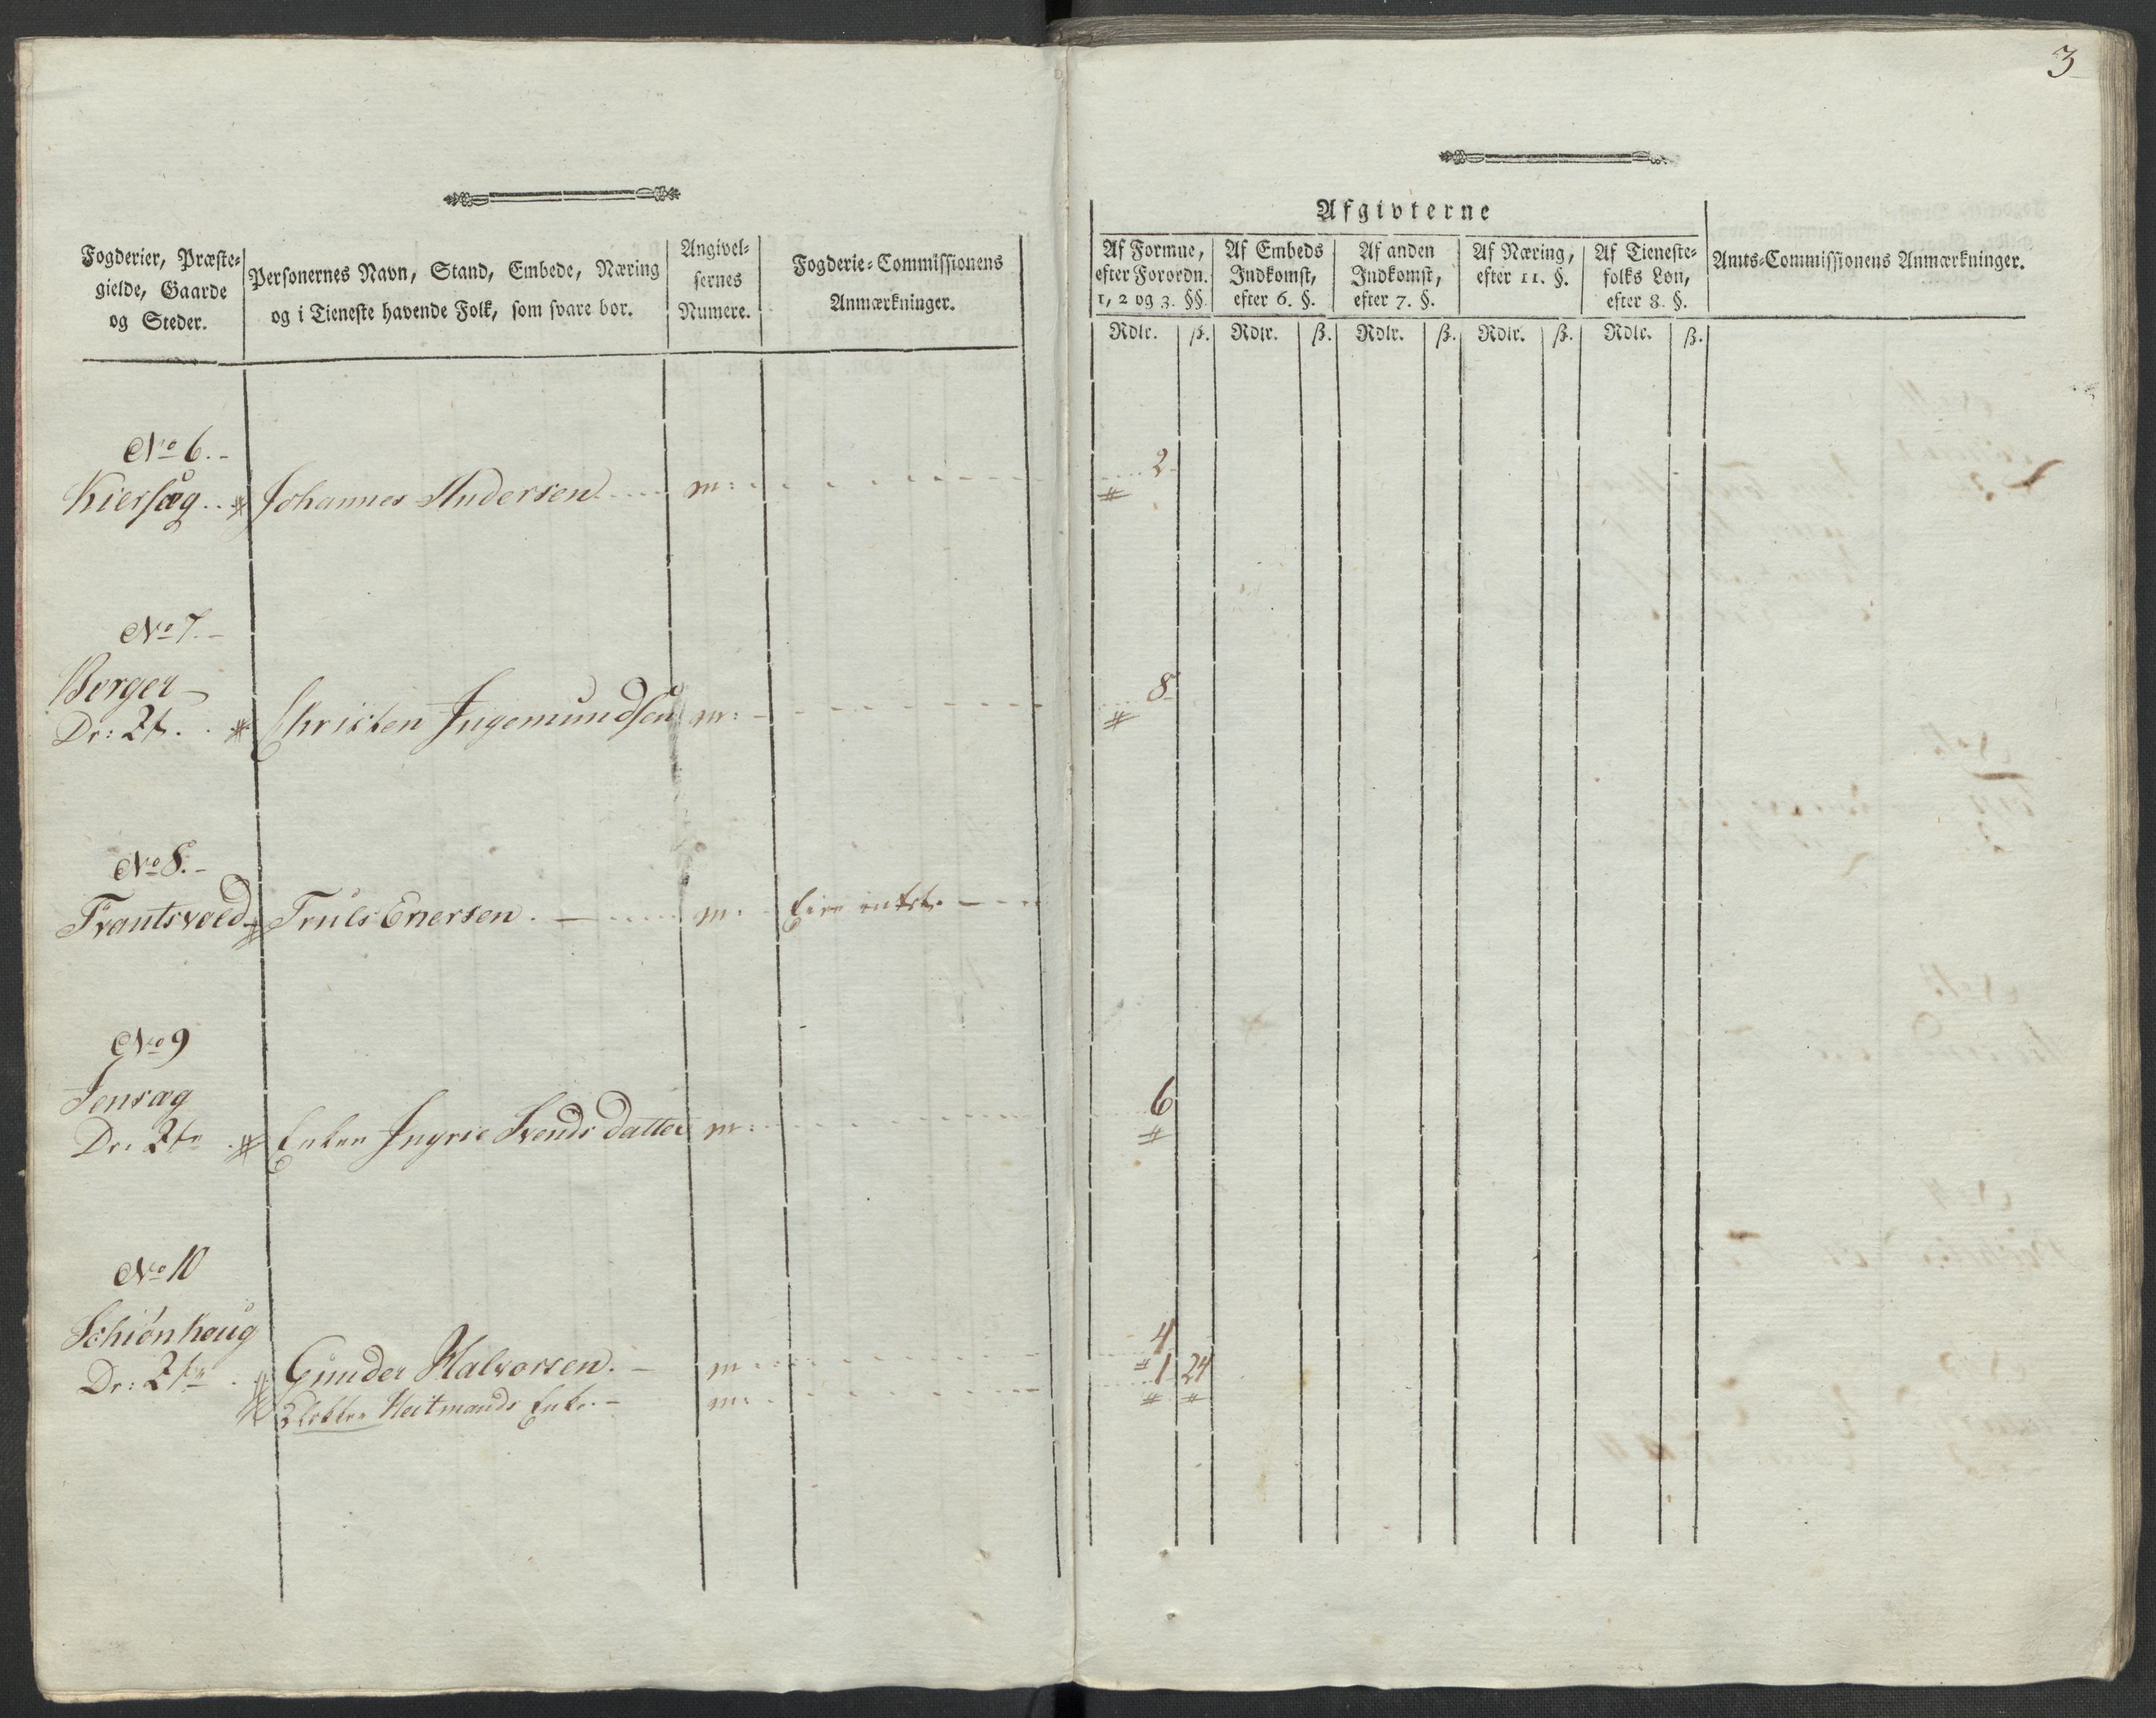 3
Afgivterne
Fogderier, Præste-
gielde, Gaarde
og Steder.
Personernes Navn, Stand, Embede, Næring
og i Tieneste havende Folk, som svare bør.
Angivel-
sernes
Numere.
Fogderie-Commissionens
Anmærkninger.
Af Formue,
efter Forordn.
1, 2 og 3. §§.
Af Embeds
Indkomst,
efter 6. §.
Af anden
Indkomst,
efter 7. §.
Af Næring,
efter 11. §.
Af Tieneste-
folks Løn,
efter 8. §.
Amts-Commissionens Anmærkninger.
Rdlr. ß. Rdlr. ß. Rdlr. ß. Rdlr. ß. Rdlr. ß.
No 6.
Kiersæg Johannes Andersen m: 2
No 7.
Berger
Dr: 2t. Christen Ingemundsen m: 8
No 8.
Trantsvold Truls Enersen m.
No 9
Jensæg
Dr: 2t Enken Ingrie Svends datter m: 6
No 10
Schiønhaug
Dr: 2t Gunder Halvorsen. m 4
Heitmands Enke m: 1 24